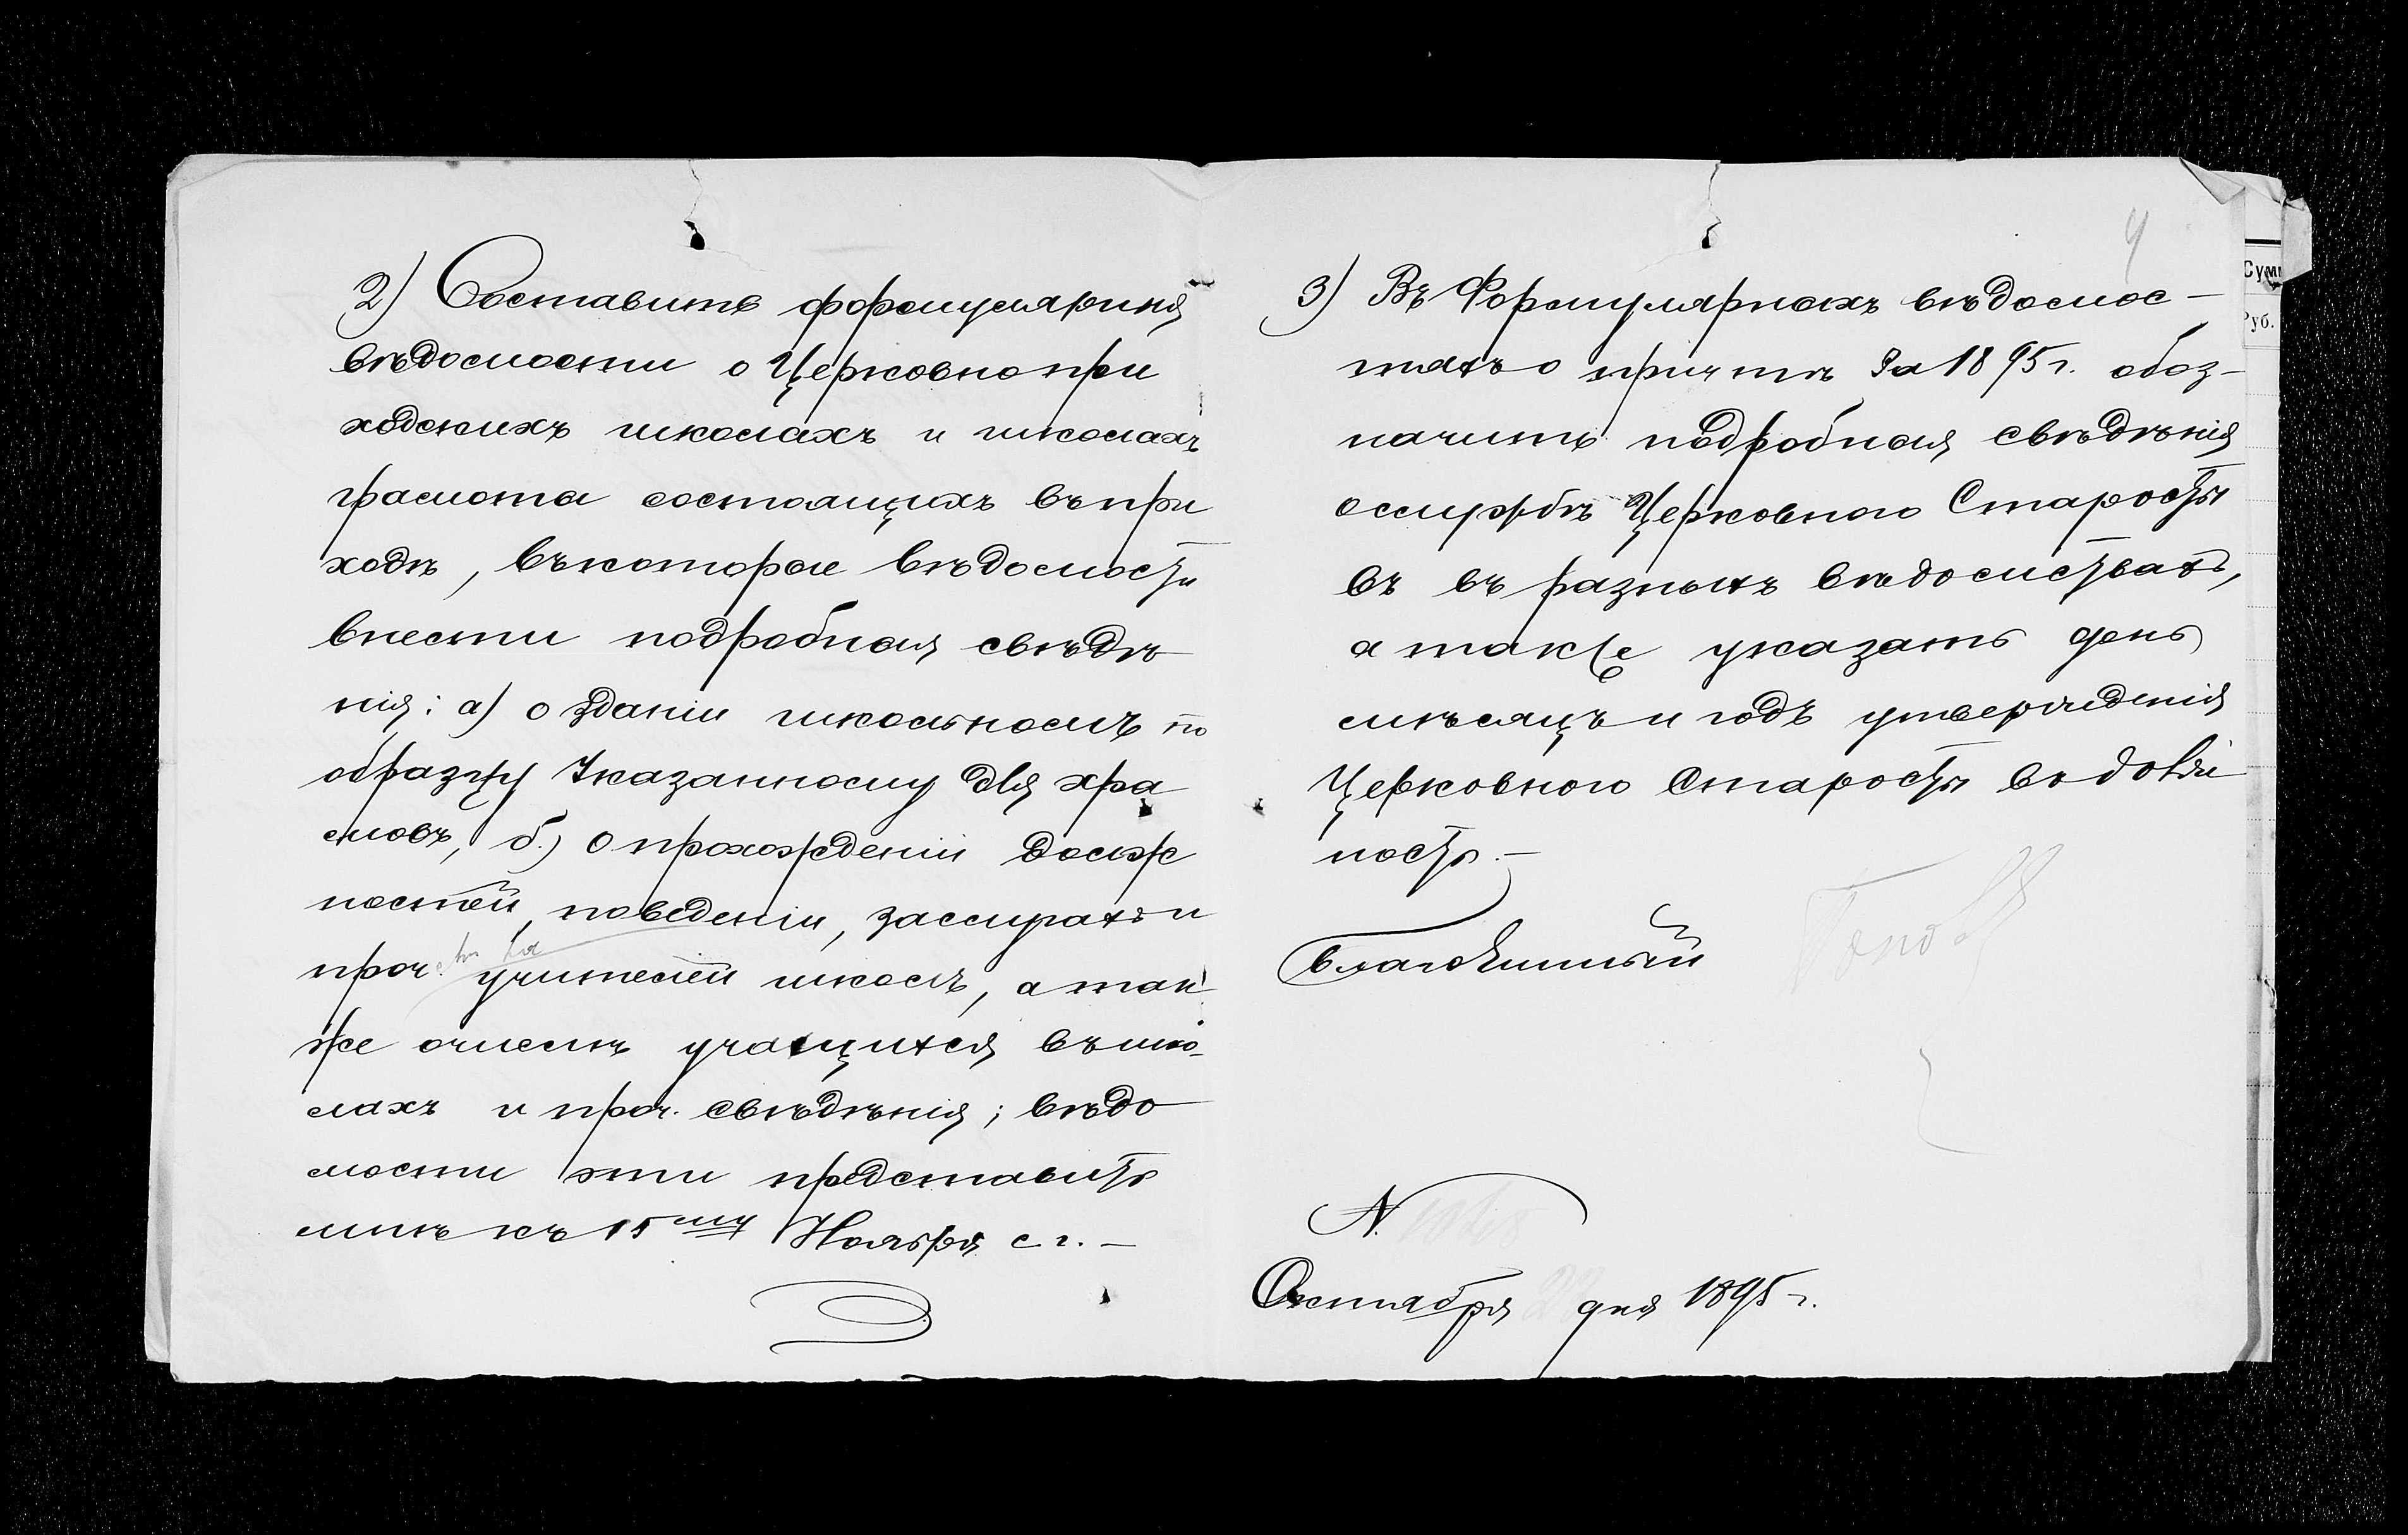 2) Составить формулярныя
вѣдомости о Церковнопри
ходскихъ школахъ и школахъ
грамота состоящихъ въ при
ходѣ, въ которые вѣдомости
внести подробная свѣдѣ
нія: а) о зданіи школьномъ по
образцу Указанному для хра
мовъ, б.) о прохожденіи долж
ностей, поведеніи, заслугахъ и
проч. учителей школъ, а так
же о числѣ учащихся въ шко-
лахъ и проч. свѣдѣнія; вѣдо
мости эти представить
мнѣ къ 15му Ноября с. г. —
4
3) Въ Формулярныхъ вѣдомос-
тяхъ о причтѣ За 1895 г. обоз-
начить подробная свѣдѣнія
о службѣ Церковного Старосты
въ въ разныхъ вѣдомствахъ,
а также указать день
мѣсяцъ и годъ утвержденія
Церковного Старосты во долж
ность. —
Благочинный Попов
N.
Октября 22 дня 1895 г.
Сум
Руб.